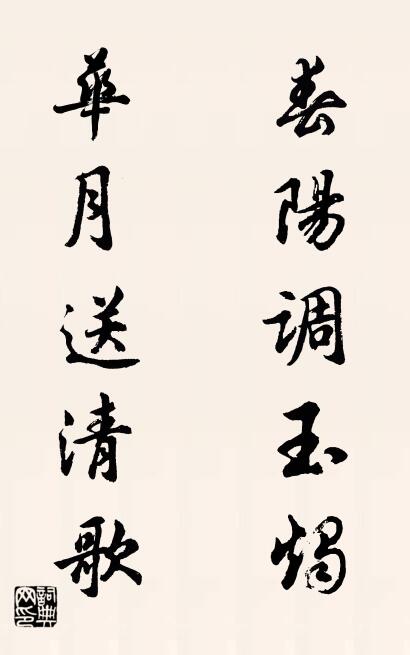 春陽調玉燭
華月送清歌
詞典网印